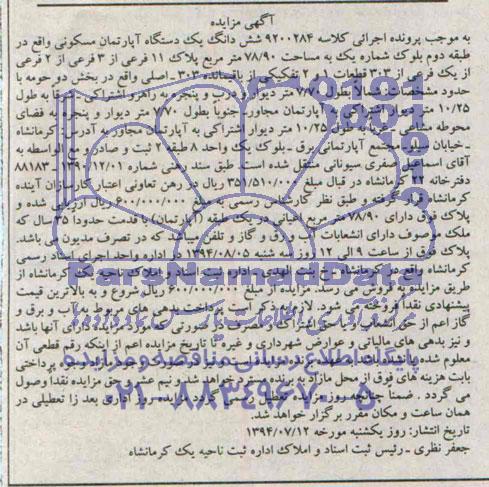 آگهی مزایده
به موجب پرونده اجرائی کلاسه ۹۲۰۰۲۸۴ شش دانگ یک دستگاه آپارتمان مسکونی واقع در
طبقه دوم بلوک شماره یک به مساحت ۷۸/۹۰ متر مربع پلاک ۱۱ فرعی از ۳ فرعی از ۲ فرعی
از یک فرعی از ۳۰۳ قطعات ۱ و ۲ تفکیکی از باقیمانده ۳۰۳ اصلی واقع در بخش دو حومه با
حدود مشخصات: شمالاً بطول ۷/۷۰ متر دیوار و درب و پنجره به راهرو اشتراکی شرقا به طول
۱۰/۲۵ متر دیوار اشتراکی با آپارتمان مجاور جنوباً بطول ۷/۷۰ متر دیوار و پنجره به فضای
محوطه مشاعی غربا به طول ۱۰/۲۵ متر دیوار اشتراکی به آپارتمان مجاور به آدرس: کرمانشاه
خیابان سیلو مجتمع آپارتمانی برق بلوک یک واحد ۸ طبقه ۲ ثبت و صادر و مع الواسطه به
آقای اسماعیل صفری سیونانی منتقل شده است طبق سند رهنی شماره ۸۸۱۸۳
دفترخانه ۲۲ کرمانشاه در قبال مبلغ ۳۵۱/۵۱۰/۰۰۰ ریال در رهن تعاونی اعتبار کارسازان آینده
کرمانشاه قرار گرفته و طبق نظر کارشناس رسمی به مبلغ ۶۰۰/۰۰۰/۰۰۰ ریال ارزیابی شده و
پلاک فوق دارای ۷۸/۹۰ متر مربع اعیانی در یک طبقه (آپارتمان) با قدمت حدودا ۳۵ سال که
ملک موصوف دارای انشعابات آب و برق و گاز و تلفن میباشد که در تصرف مدیون می باشد.
پلاک فوق از ساعت ۹ الی ۱۲ روز سه شنبه ۱۳۹۴/۰۸/۰۵ در اداره واحد اجرای اسناد رسمی
کرمانشاه واقع در کرمانشاه خ بنت الهدی اداره ثبت اسناد و املاک ناحیه یک کرمانشاه از
طریق مزایده به فروش می رسد. مزایده از مبلغ ۶۰۰/۰۰۰/۰۰۰ ریال شروع و به بالاترین قیمت
پیشنهادی نقدا فروخته می شود. لازم به ذکر است پرداخت بدهی های مربوط به آب و برق و
گاز اعم از حق انشعاب و یا حق اشتراک و مصرف در صورتی که مورد مزایده دارای آنها باشد
و نیز بدهی های مالیاتی و عوارض شهرداری و غیره تا تاریخ مزایده اعم از اینکه رقم قطعی آن
معلوم شده یا نشده باشد به عهده برنده مزایده است و نیز در صورت وجود مازاد وجوه پرداختی
بابت هزینه های فوق از محل مازاد به برنده مسترد خواهد شد و نیم عشر و حق مزایده نقدا وصول
می گردد. ضمنا چنانچه روز مزایده تعطیل رسمی گردد مزایده روز اداری بعد از تعطیلی در
همان ساعت و مکان مقرر برگزار خواهد شد.
تاریخ انتشار: روز یکشنبه مورخه ۱۳۹۴/۰۷/۱۲
جعفر نظری - رئیس ثبت اسناد و املاک اداره ثبت ناحیه یک کرمانشاه
ParsNamadData
پایگاه اطلاع رسانی مناقصه و مزایده
۰۲۱-۸۸۳۴۹۶۷۰-۵